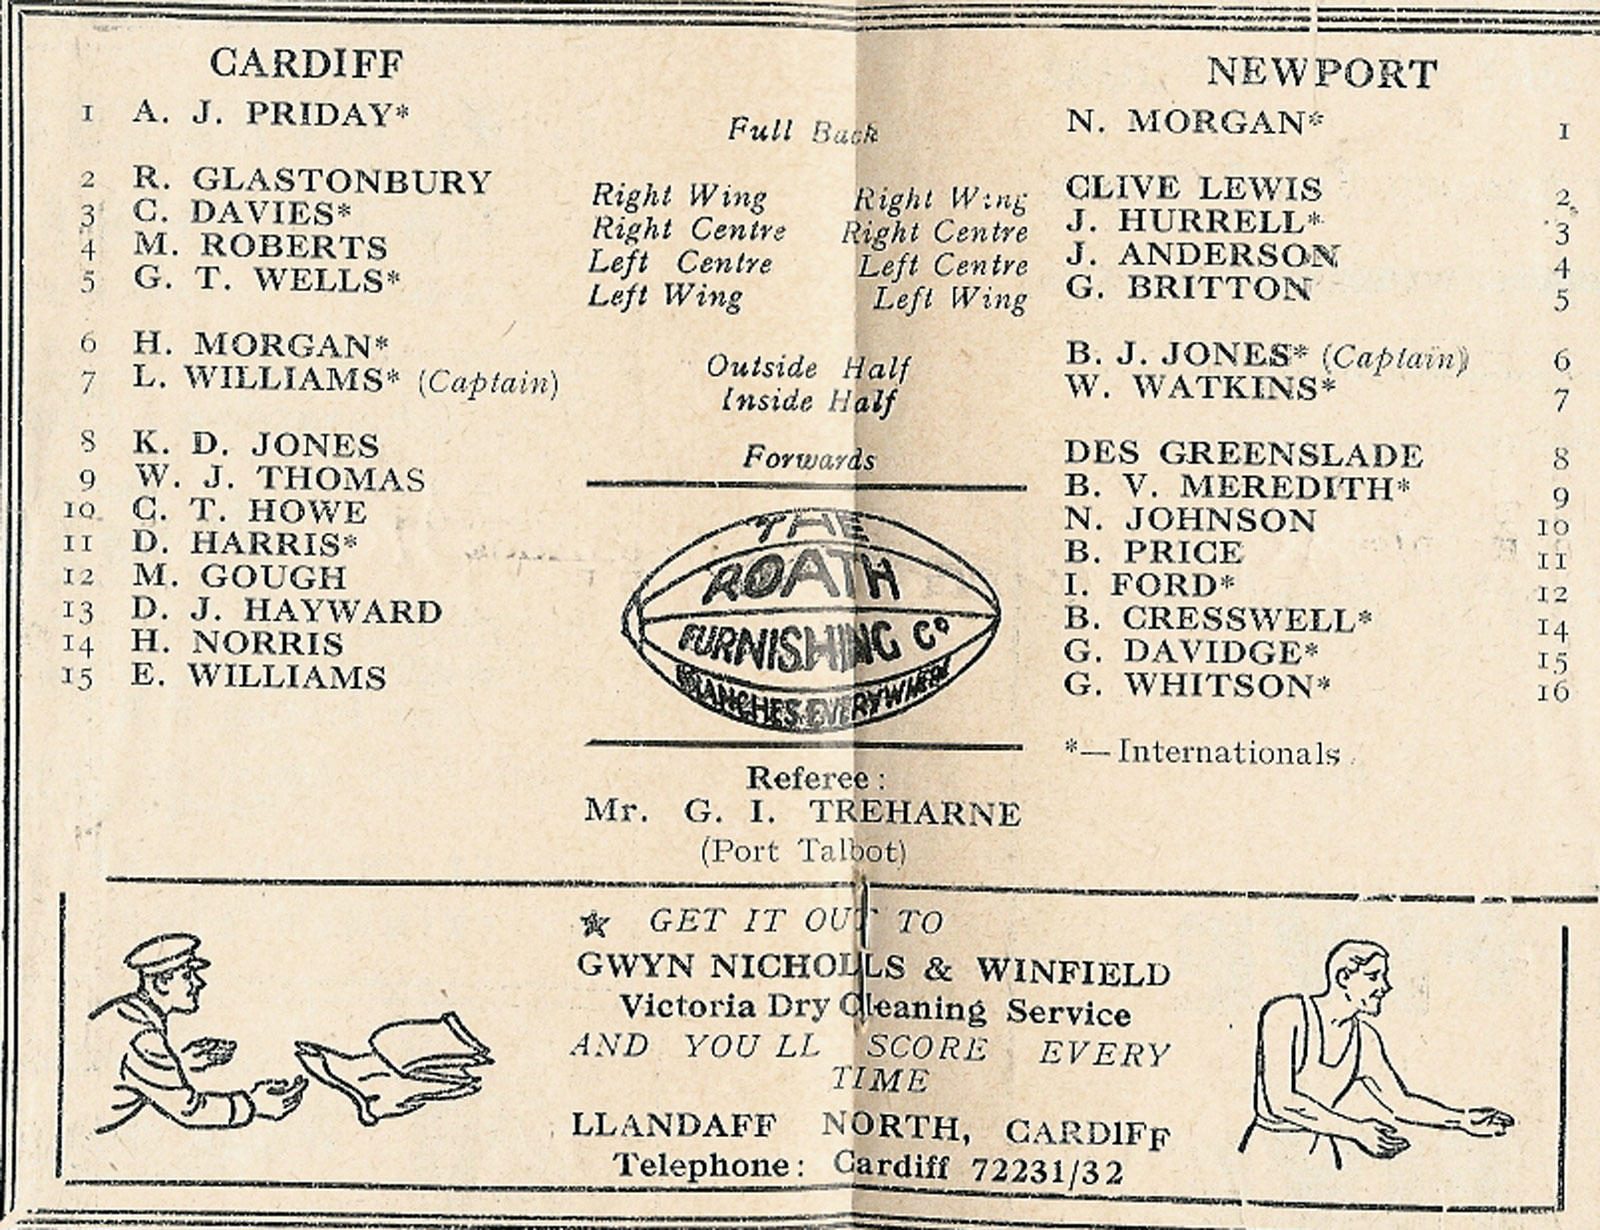 CARDIFF
1 A. J. PRIDAY*
2 R. GLASTONBURY
3 C. DAVIES*
4 M. ROBERTS
5 G. T. WELLS*
6 H. MORGAN*
7 L. WILLIAMS* (Captain)
8 K. D. JONES
9 W. J. THOMAS
10 C. T. HOWE
11 D. HARRIS*
12 M. GOUGH
13 D. J. HAYWARD
14 H. NORRIS
15 E. WILLIAMS
Full Back
Right Wing Right Wing
Right Centre Right Centre
Left Centre Left Centre
Left Wing Left Wing
Outside Half
Inside Half
Forwards
THE
ROATH
FURNISHING Co
BRANCHES EVERYWHERE
Referee:
Mr. G. I. TREHARNE
(Port Talbot)
NEWPORT
N. MORGAN* 1
CLIVE LEWIS 2
J. HURRELL* 3
J. ANDERSON 4
G. BRITTON 5
B. J. JONES* (Captain) 6
W. WATKINS* 7
DES GREENSLADE 8
B. V. MEREDITH* 9
N. JOHNSON 10
B. PRICE 11
I. FORD* 12
B. CRESSWELL* 14
G. DAVIDGE* 15
G. WHITSON* 16
*—Internationals
GET IT OUT TO
GWYN NICHOLLS & WINFIELD
Victoria Dry Cleaning Service
AND YOU LL SCORE EVERY
TIME
LLANDAFF NORTH, CARDIFF
Telephone: Cardiff 72231/32